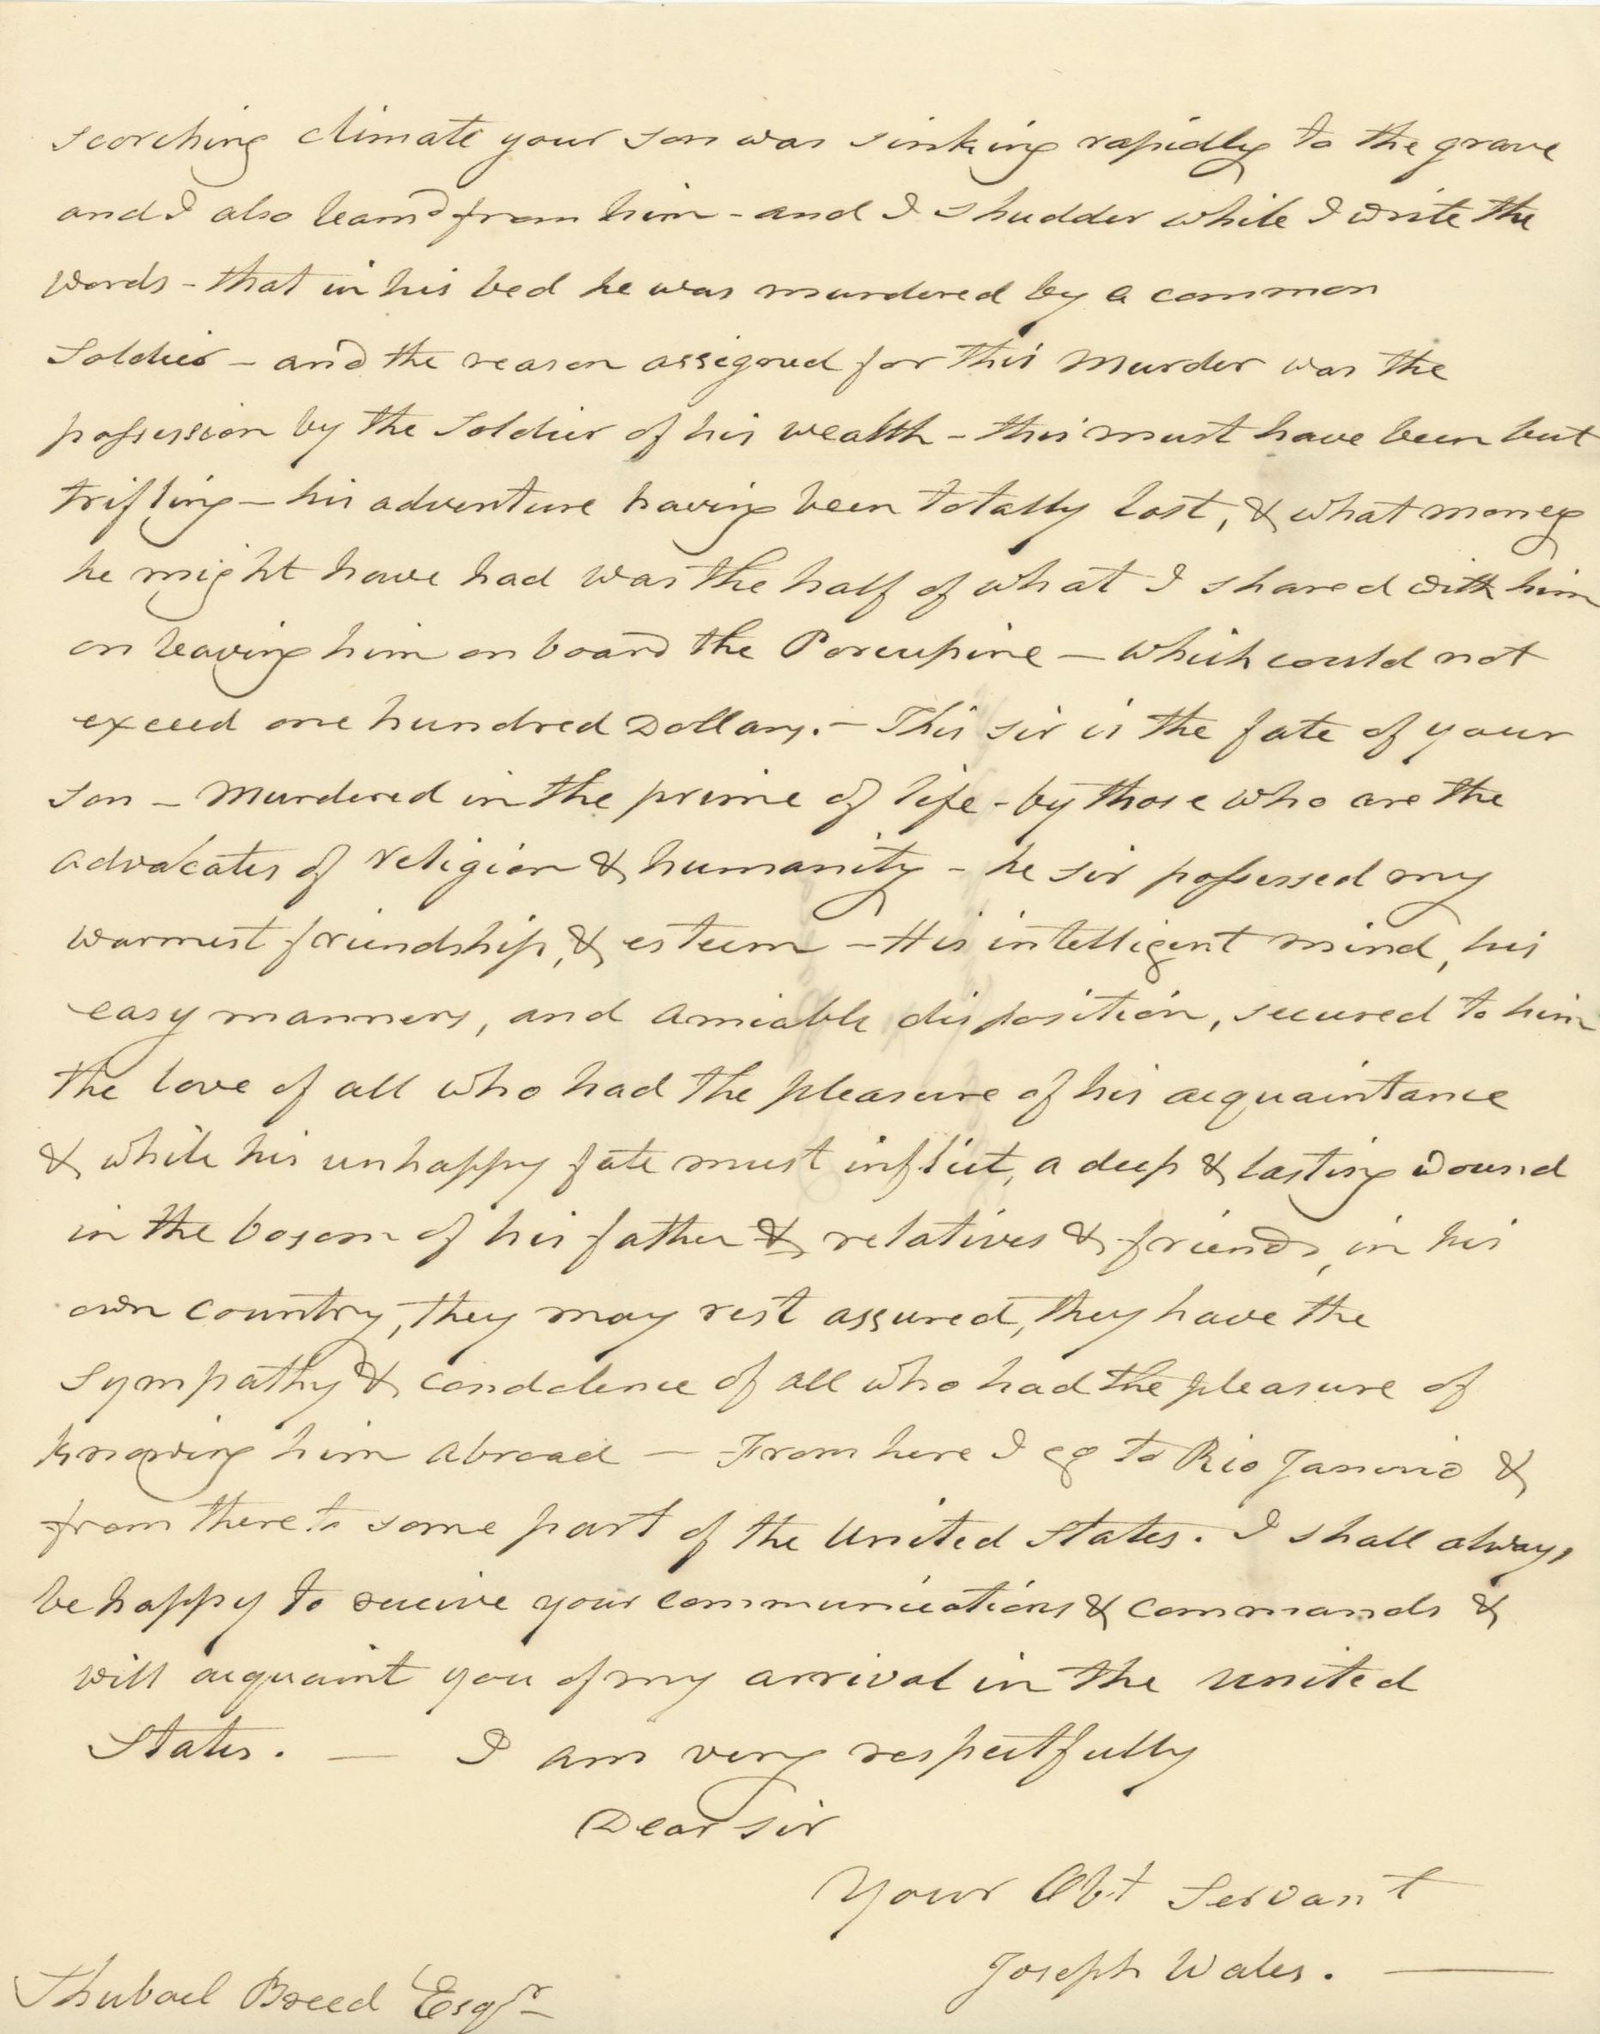 scorching climate your son was sinking rapidly to the grave
and I also learnd from him - and I shudder while I write the
words - that in his bed he was murdered by a common
Soldier - and the reason assigned for this Murder was the
possession by the Soldier of his wealth - this must have been but
trifling - his adventure having been totally lost, & what money
he might have had was the half of what I shared with him
on leaving him on board the Porcupine - which could not
exceed one hundred Dollars. - This sir is the fate of your
son - Murdered in the prime of life - by those who are the
advocates of religion & humanity - he sir possessed my
warmest friendship, & esteem - His intelligent mind, his
easy manners, and amiable disposition, secured to him
the love of all who had the pleasure of his acquaintance
& while his unhappy fate must inflict, a deep & lasting wound
in the bosom of his father & relatives & friends, in his
own country, they may rest assured, they have the
sympathy & condolence of all who had the pleasure of
knowing him abroad - From here I go to Rio Janeiro &
from there to some part of the United States. I shall always
be happy to receive your communications & commands &
will acquaint you of my arrival in the United
States. - I am very respectfully
Dear sir
Your Obt Servant
Joseph Wales. -
Shubael Breed Esqr